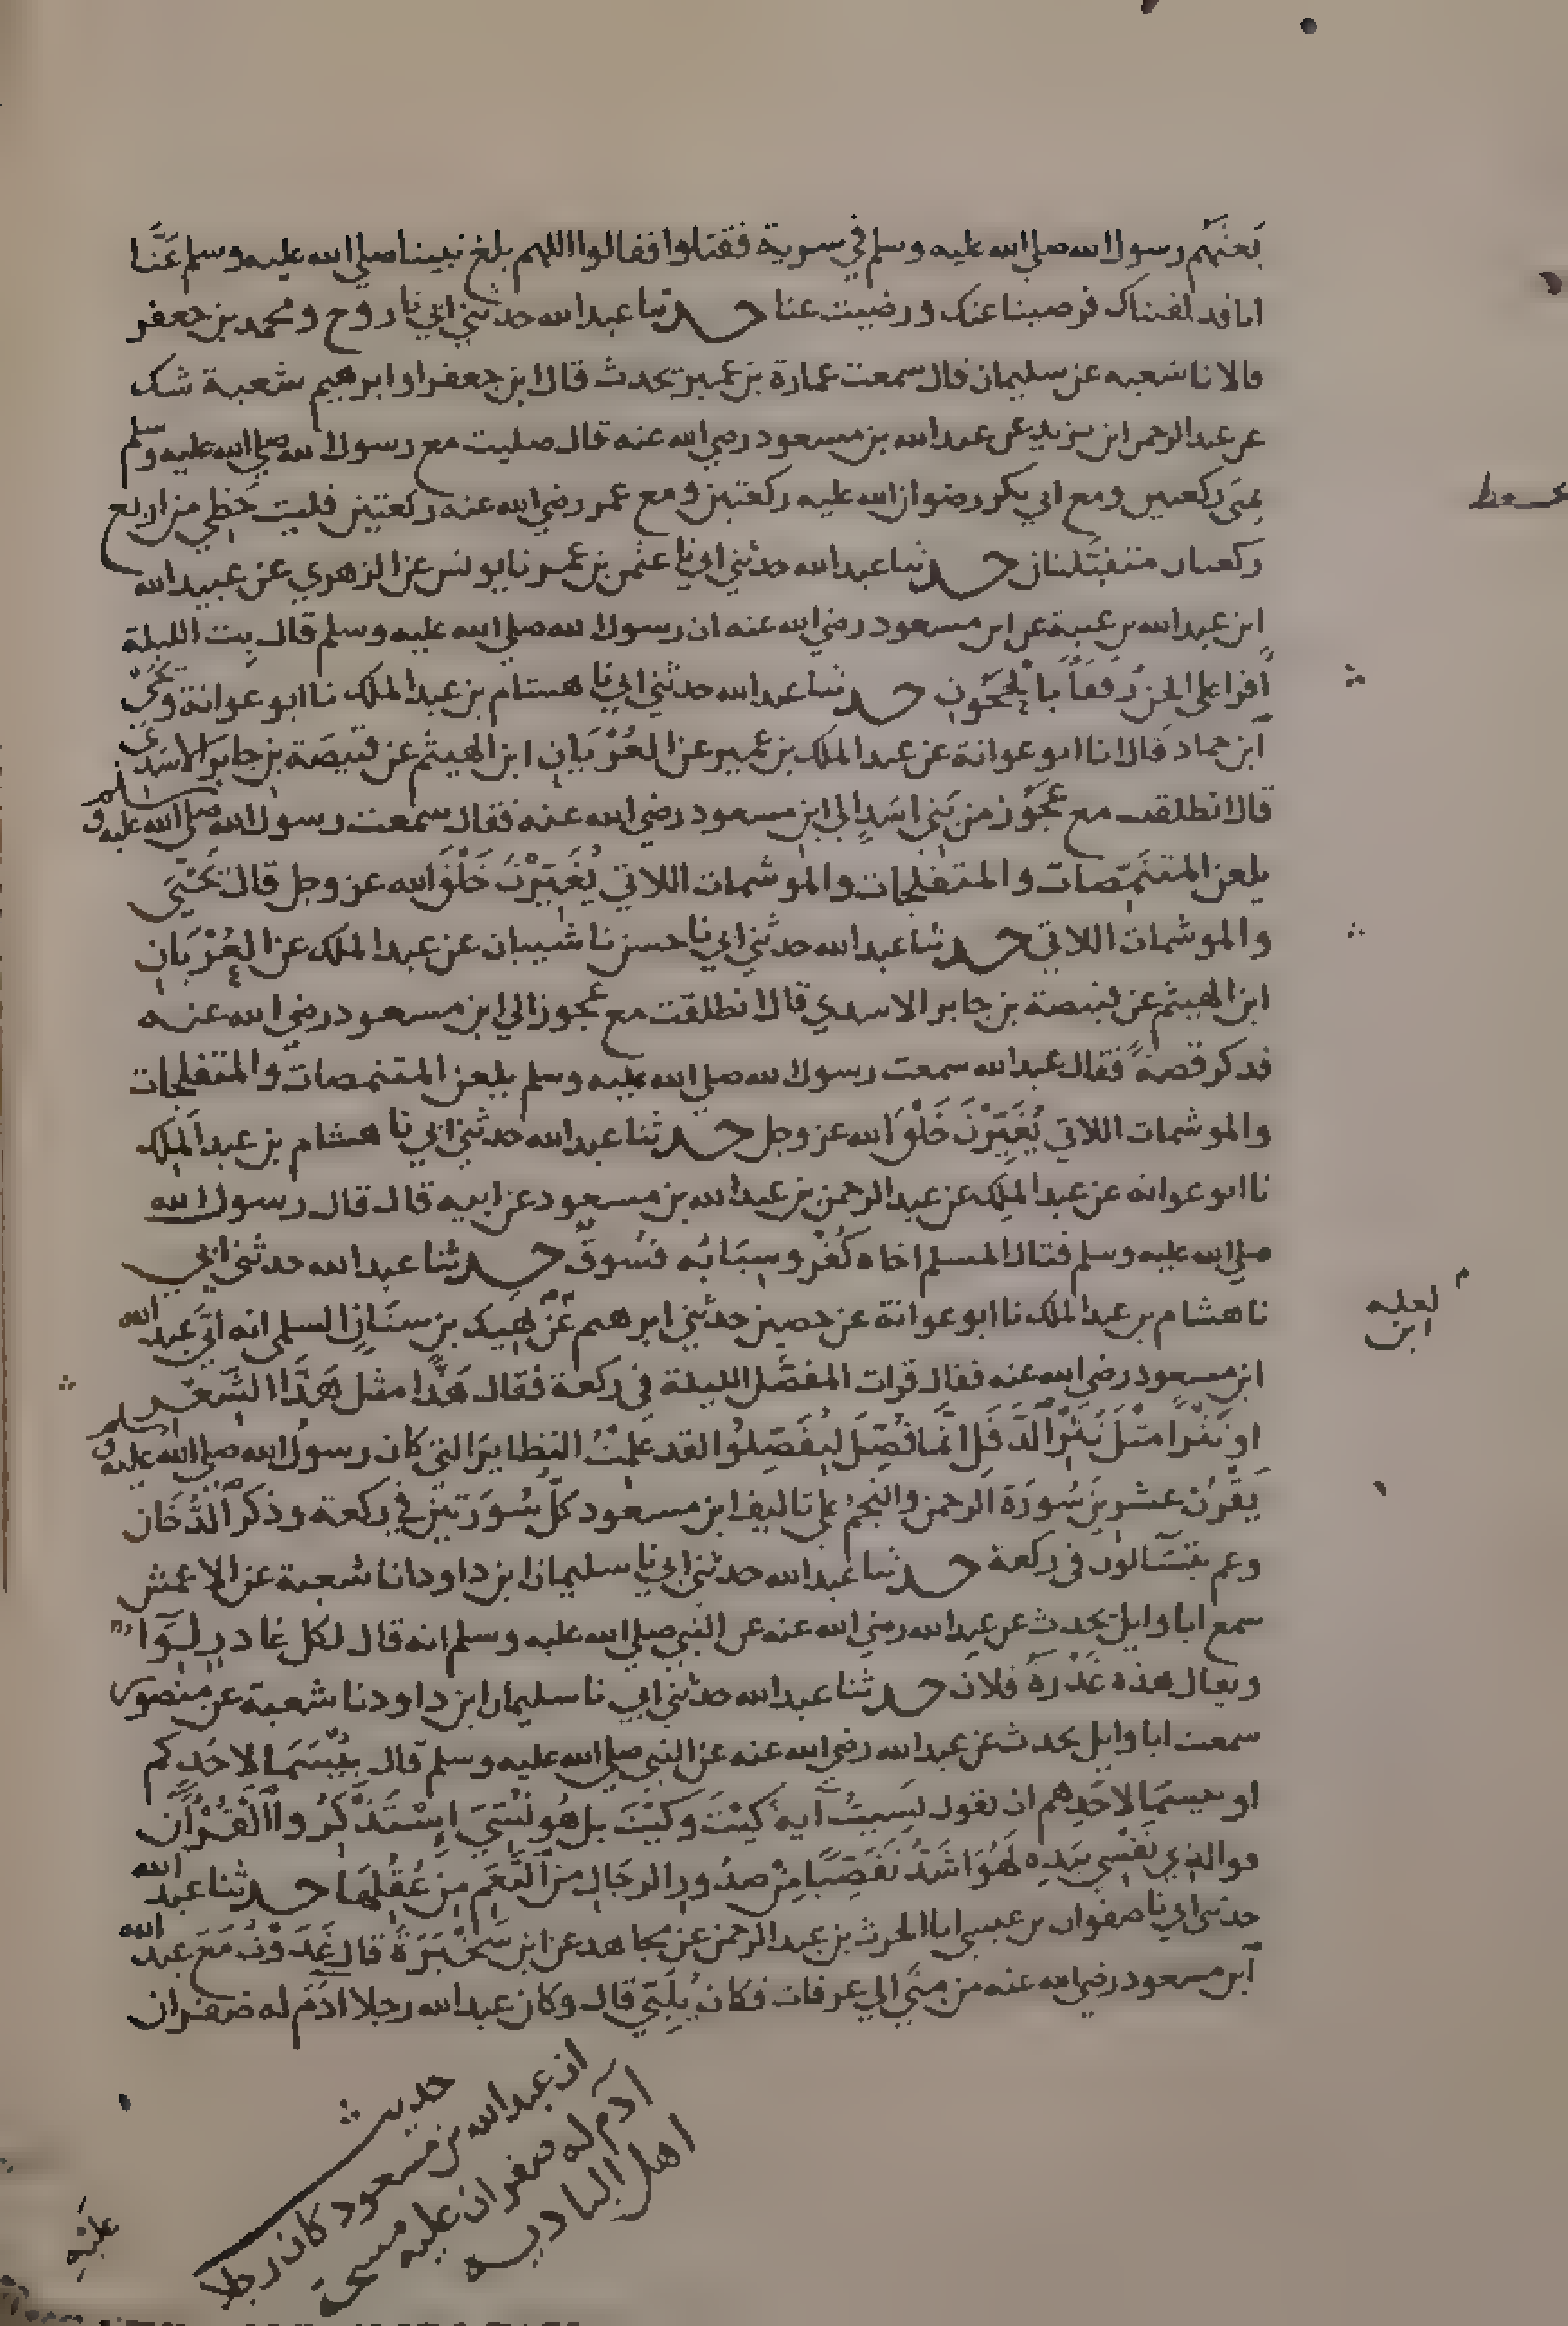 بَعثهُم رسول الله صلى الله عليه وسلم في سرية فقتلوا فقالوا اللهم بلغ نبينا صلى الله عليه وسلم عَنَّا
انا قد لقيناك فرضينا عنك ورضيت عنا حدثنا عبد الله حدثني ابي نا روح ومحمد بن جعفر
قالا نا شعبه عن سليمان قال سمعت عمارة بن عمير يحدث قال ابن جعفر او ابرهيم شعبة شك
عن عبد الرحمن ابن يزيد عن عبد الله بن مسعود رضي الله عنه قال صليت مع رسول الله صلى الله عليه وسلم
بمنى ركعتين ومع ابي بكر رضوان الله عليه ركعتين ومع عمر رضي الله عنه ركعتين فليت حظي من اربع
ركعتان متقبلتان حدثنا عبد الله حدثني ابي نا عثمن بن عمر نا يونس عن الزهري عن عبيد الله
ابن عبد الله بن عتبة عن ابن مسعود رضي الله عنه ان رسول الله صلى الله عليه وسلم قال بِت الليلة
أقرا على الجن رفقاً بالحَجُونِ حدثنا عبد الله حدثني ابي نا هشام بن عبد الملك نا ابو عوانة ويحيى
ابن حماد قال انا ابو عوانة عن عبد الملك بن عمير عن العُرْيَانِ ابن الهيثم عن قبيصَة بن جابر الاسَدي
قال انطلقت مع عجَوز من بَني اسَدٍ الى ابن مسعود رضي الله عنه فقال سمعت رسول الله صلى الله عليه وسلم
يلعن المتنَمِّصات والمتفلجات والموشمات اللاتي يُغَيّرْنَ خَلْقَ الله عز وجل قال يَحْيَى
والموشمات اللاتي حدثنا عبد الله حدثني ابي نا حسن نا شيبان عن عبد الملك عن العُرْيَانِ
ابن الهيثم عن قبيصة بن جابر الاسدي قال انطلقت مع عجوز الى ابن مسعود رضي الله عنه
فذكر قصةً فقال عبد الله سمعت رسول الله صلى الله عليه وسلم يلعن المتنمصات والمتفلجات
والموشمات اللاتي يُغَيّرْنَ خَلْقَ الله عز وجل حدثنا عبد الله حدثني ابي نا هشام بن عبد الملك
نا ابو عوانه عن عبد الملك عن عبد الرحمن بن عبد الله بن مسعود عن ابيه قال قال رسول الله
صلى الله عليه وسلم قتال المسلم اخاه كُفْر وسبَابُه فسُوقٌ حدثنا عبد الله حدثني ابي
نا هشام بن عبد الملك نا ابو عوانة عن حصين حدثني ابرهيم عَن نَهِيك بن سنَانٍ السلمي انه اتى عبد الله
ابن مسعود رضي الله عنه فقال قرات المفصَّل الليلة في ركعة فقال هَذًّا مثل هَذِّ الشِّعْر
او نَثْرًا مثْلَ نَثْرِ الدَّقَلِ انَّما فُصِّلَ لتُفَصِّلُوا لقد علِمْتُ النظايرَ التي كان رسولُ الله صلى الله عليه وسلم
يَقْرُن عشرينَ سُورَة الرحمن والنجمُ على تاليف ابن مسعود كلّ سُورَتين في ركعة وذكر الدُّخَان
وعم يتسَآلون في ركعة حدثنا عبد الله حدثني ابي نا سليمان ابن داود انا شعبة عن الاعمش
سمع ابا وايل يحدث عن عبد الله رضي الله عنه عن النبي صلى الله عليه وسلم انه قال لكل غادرٍ لِوَآءٌ
ويقال هذه غَدْرَة فلان حدثنا عبد الله حدثني ابي نا سليمان ابن داود نا شعبة عن منصور
سمعت ابا وايل يحدث عن عبد الله رضي الله عنه عن النبي صلى الله عليه وسلم قال بِئْسَمَا لاحَدِكم
او بيسمَا لاحَدِهم ان يقول نَسِيتُ آيه كَيْتَ وكَيْتَ بل هُو نُسِّيَ اسْتَذْكِرُوا القُرْآن
فوالذي نَفْسي بيَدِه لَهُوَ اشَدُّ تَفَصِّيًا مِنْ صدُورِ الرجَالِ من النَّعَمِ مِن عُقُلِهَا حدثنا عبد الله
حدثني ابي نا صفوان بن عيسى انا الحرث بن عبد الرحمن عن مجاهد عن ابن سَخْبَرَةَ قال غَدَوْتُ مَعَ عبد الله
ابن مسعود رضي الله عنه من مِنًى الى عرفات فكان يُلَبّي قال وكان عبد الله رجلا آدَمَ له ضفران
لعله
ابن
حديث
ان عبد الله بن مسعود كان رجلا
آدم له ضفران عليه مسحة
اهل الباديه
عليه